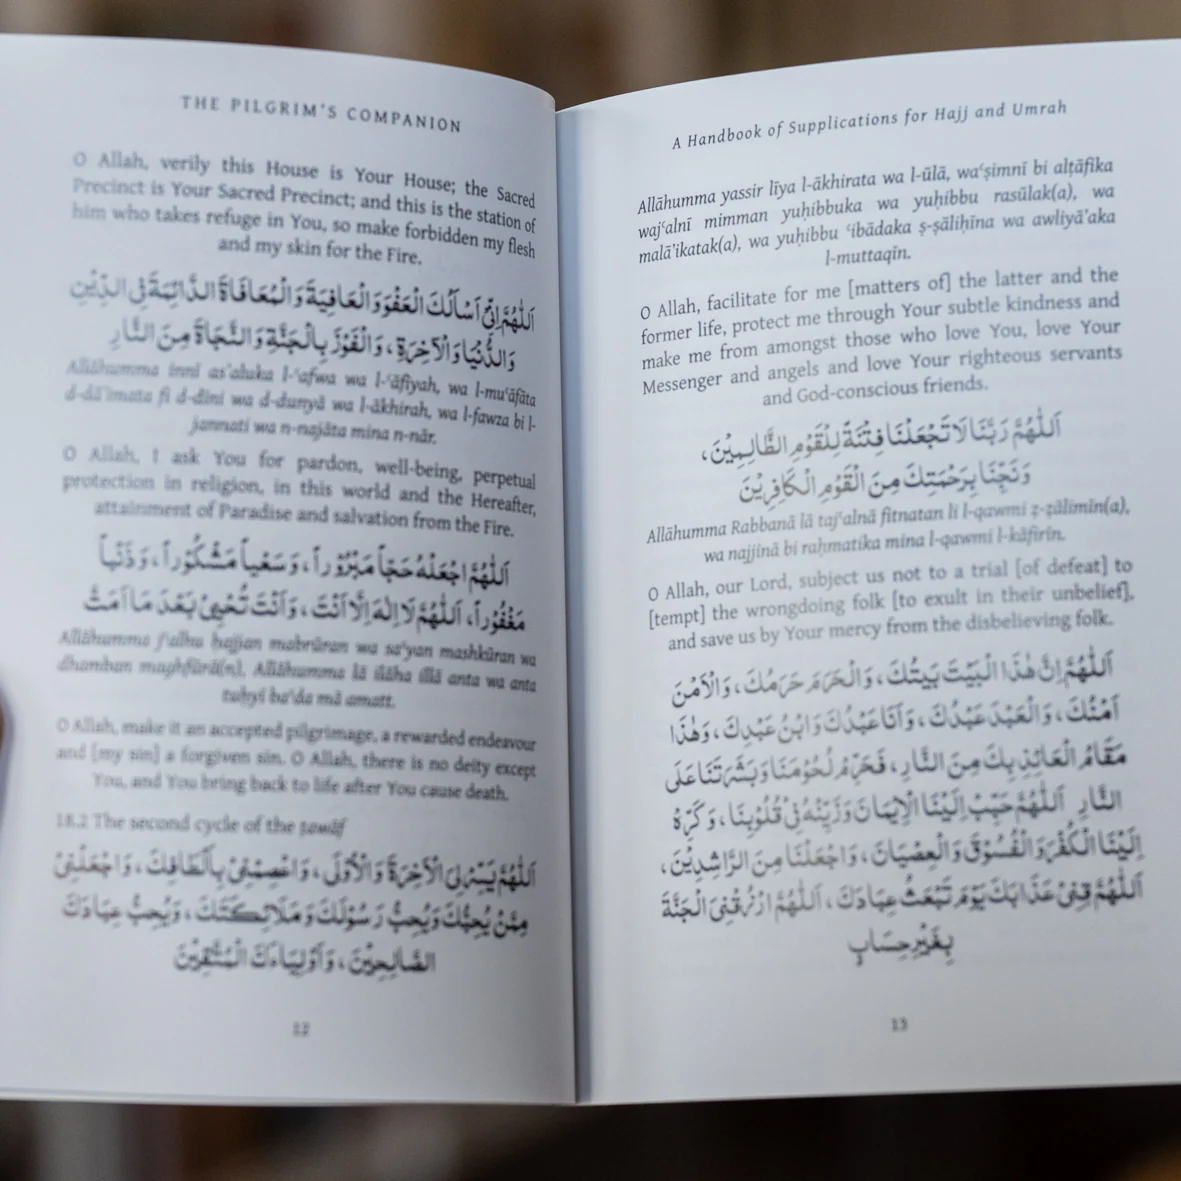 THE PILGRIM'S COMPANION
O Allah, verily this House is Your House; the Sacred
Precinct is Your Sacred Precinct; and this is the station of
him who takes refuge in You, so make forbidden my flesh
and my skin for the Fire.
اَللّٰهُمَّ اِنِّيْ اَسْأَلُكَ الْعَفْوَ وَالْعَافِيَةَ وَالْمُعَافَاةَ الدَّائِمَةَ فِي الدِّيْنِ
وَالدُّنْيَا وَالْاٰخِرَةِ، وَالْفَوْزَ بِالْجَنَّةِ وَالنَّجَاةَ مِنَ النَّارِ
Allāhumma innī as'aluka l-ʿafwa wa l-ʿāfiyah, wa l-muʿāfāta
d-dā'imata fi d-dīni wa d-dunyā wa l-ākhirah, wa l-fawza bi l-
jannati wa n-najāta mina n-nār.
O Allah, I ask You for pardon, well-being, perpetual
protection in religion, in this world and the Hereafter,
attainment of Paradise and salvation from the Fire.
اَللّٰهُمَّ اجْعَلْهُ حَجّاً مَبْرُوْراً، وَسَعْياً مَشْكُوْراً، وَذَنْباً
مَغْفُوْراً، اَللّٰهُمَّ لَا اِلٰهَ اِلَّا اَنْتَ، وَاَنْتَ تُحْيِيْ بَعْدَ مَا اَمَتَّ
Allāhumma j'alhu ḥajjan mabrūran wa sa'yan mashkūran wa
dhamban maghfūrā(n), Allāhumma lā ilāha illā anta wa anta
tuḥyī ba'da mā amatt.
O Allah, make it an accepted pilgrimage, a rewarded endeavour
and [my sin] a forgiven sin. O Allah, there is no deity except
You, and You bring back to life after You cause death.
18.2 The second cycle of the ṭawāf
اَللّٰهُمَّ يَسِّرْ لِيَ الْاٰخِرَةَ وَالْاُوْلَى، وَاعْصِمْنِيْ بِأَلْطَافِكَ، وَاجْعَلْنِيْ
مِمَّنْ يُحِبُّكَ وَيُحِبُّ رَسُوْلَكَ وَمَلَائِكَتَكَ، وَيُحِبُّ عِبَادَكَ
الصَّالِحِيْنَ، وَاَوْلِيَاءَكَ الْمُتَّقِيْنَ
12
A Handbook of Supplications for Hajj and Umrah
Allāhumma yassir līya l-ākhirata wa l-ūlā, waʿṣimnī bi alṭāfika
wajʿalnī mimman yuḥibbuka wa yuḥibbu rasūlak(a), wa
malā'ikatak(a), wa yuḥibbu ʿibādaka ṣ-ṣāliḥīna wa awliyā'aka
l-muttaqīn.
O Allah, facilitate for me [matters of] the latter and the
former life, protect me through Your subtle kindness and
make me from amongst those who love You, love Your
Messenger and angels and love Your righteous servants
and God-conscious friends.
اَللّٰهُمَّ رَبَّنَا لَا تَجْعَلْنَا فِتْنَةً لِلْقَوْمِ الظَّالِمِيْنَ،
وَنَجِّنَا بِرَحْمَتِكَ مِنَ الْقَوْمِ الْكَافِرِيْنَ
Allāhumma Rabbanā lā tajʿalnā fitnatan li l-qawmi ẓ-ẓālimīn(a),
wa najjinā bi raḥmatika mina l-qawmi l-kāfirīn.
O Allah, our Lord, subject us not to a trial [of defeat] to
[tempt] the wrongdoing folk [to exult in their unbelief],
and save us by Your mercy from the disbelieving folk.
اَللّٰهُمَّ اِنَّ هٰذَا الْبَيْتَ بَيْتُكَ، وَالْحَرَمَ حَرَمُكَ، وَالْاَمْنَ
اَمْنُكَ، وَالْعَبْدَ عَبْدُكَ، وَاَنَا عَبْدُكَ وَابْنُ عَبْدِكَ، وَهٰذَا
مَقَامُ الْعَائِذِ بِكَ مِنَ النَّارِ، فَحَرِّمْ لُحُوْمَنَا وَبَشَرَتَنَا عَلَى
النَّارِ اَللّٰهُمَّ حَبِّبْ اِلَيْنَا الْاِيْمَانَ وَزَيِّنْهُ فِيْ قُلُوْبِنَا، وَكَرِّهْ
اِلَيْنَا الْكُفْرَ وَالْفُسُوْقَ وَالْعِصْيَانَ، وَاجْعَلْنَا مِنَ الرَّاشِدِيْنَ،
اَللّٰهُمَّ قِنِيْ عَذَابَكَ يَوْمَ تَبْعَثُ عِبَادَكَ، اَللّٰهُمَّ ارْزُقْنِيَ الْجَنَّةَ
بِغَيْرِ حِسَابٍ
13